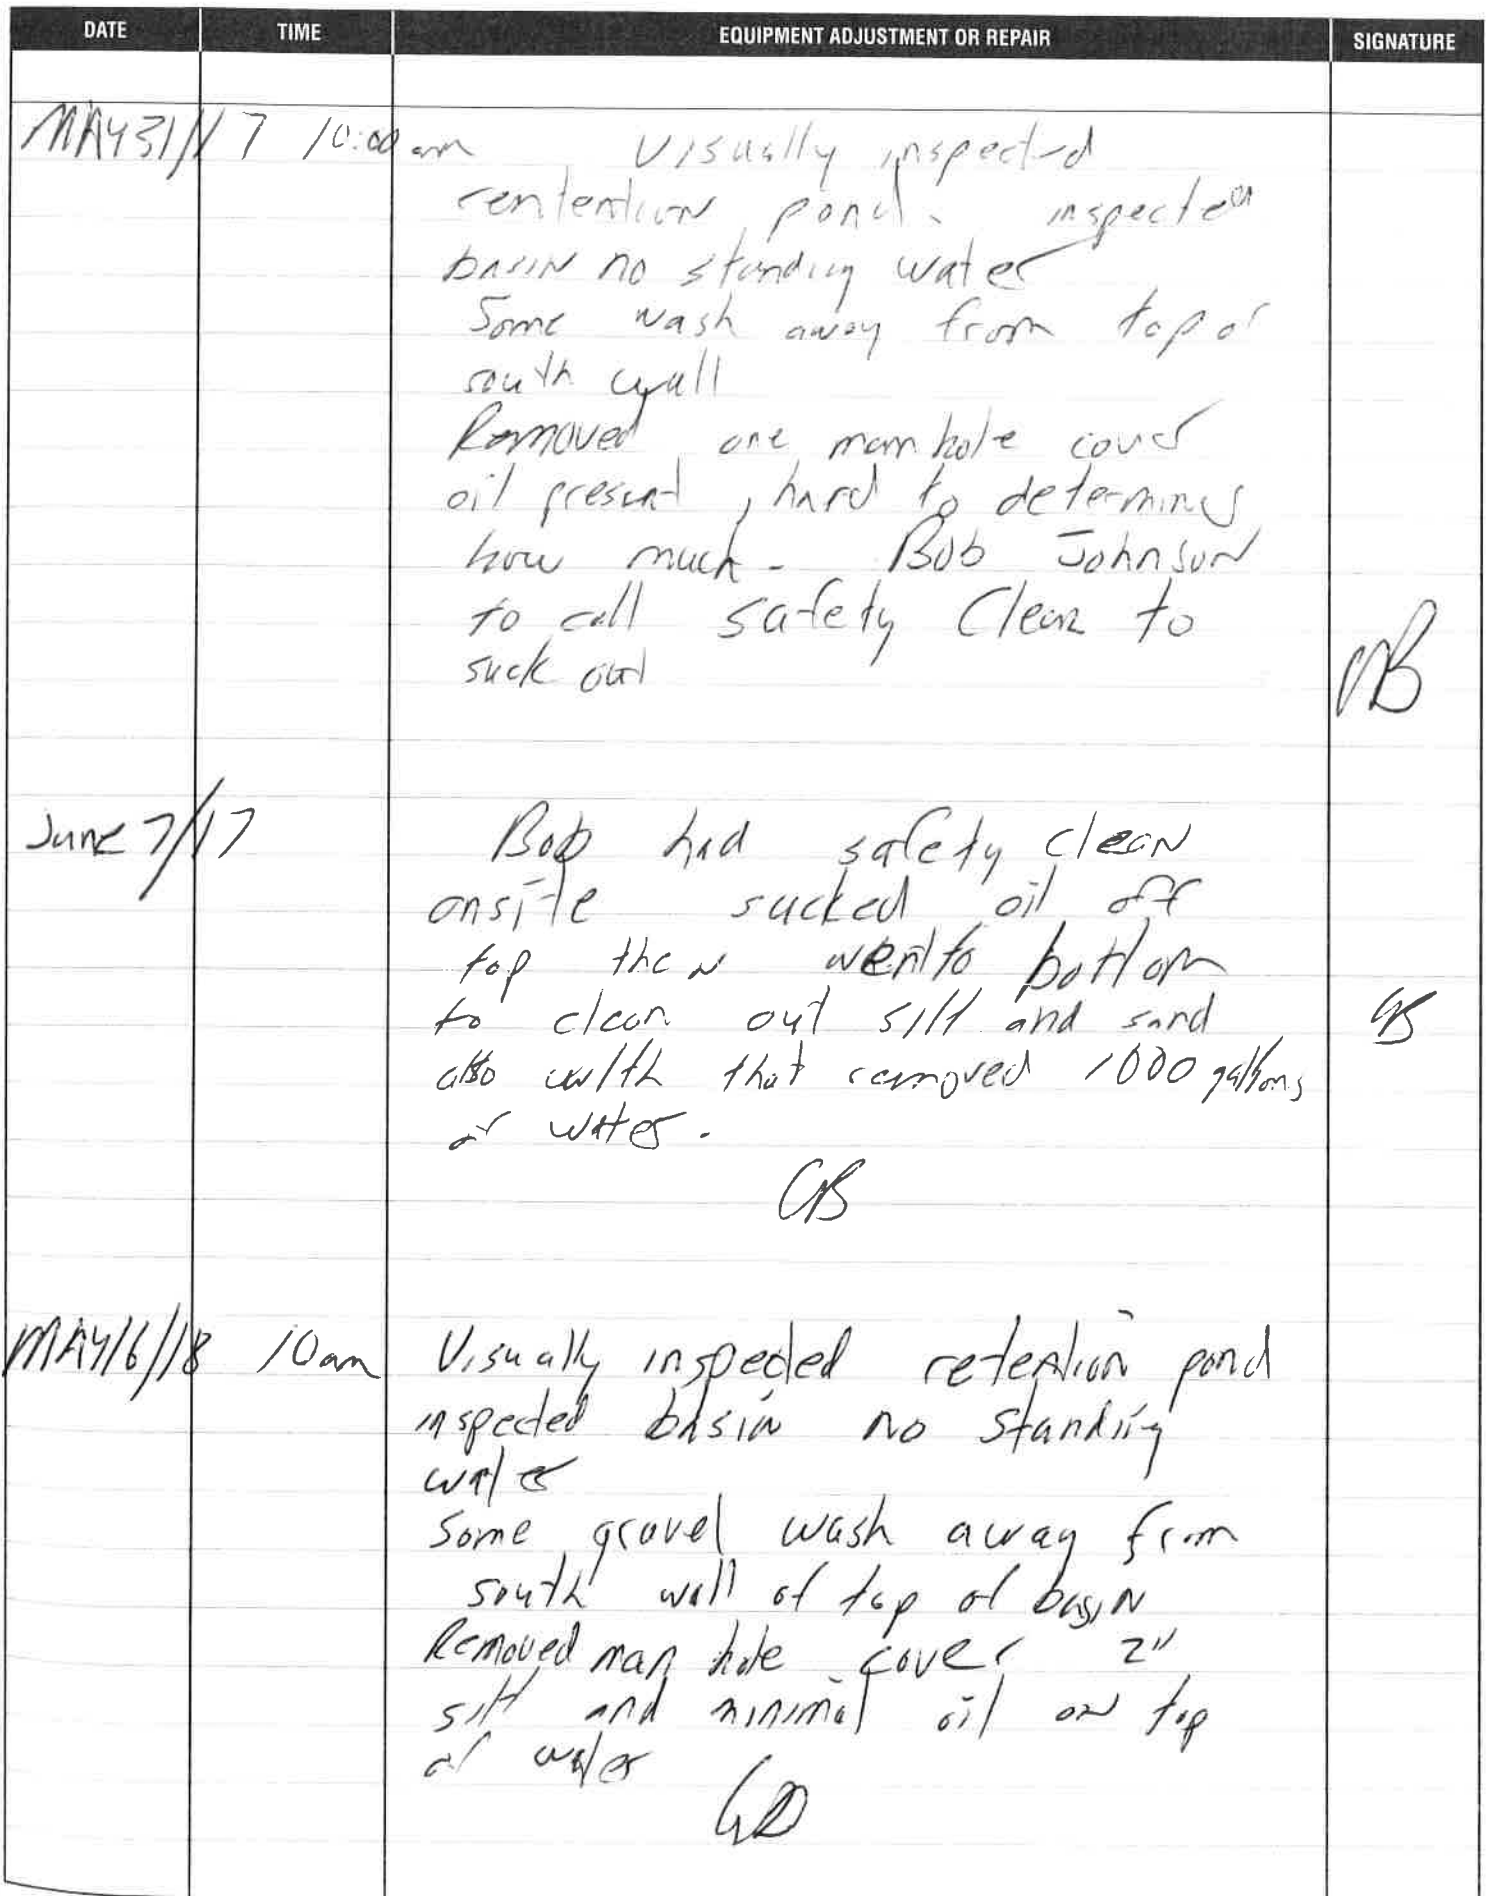 DATE TIME EQUIPMENT ADJUSTMENT OR REPAIR SIGNATURE
MAY 31/17 10:00 am Visually inspected
rentention pond. inspected
basin no standing water
Some wash away from top of
south wall
Removed one man hole cover
oil present, hard to determine
how much - Bob Johnson
to call safety Clean to
suck out
June 7/17 Bob had safety clean
onsite sucked oil off
top then went to bottom
to clean out silt and sand
also with that removed 1000 gallons
of water.
GB
MAY 16/18 10am Visually inspected retention pond
inspected basin no standing
water
Some gravel wash away from
south wall of top of basin
Removed man hole cover 2"
silt and minimal oil on top
of water